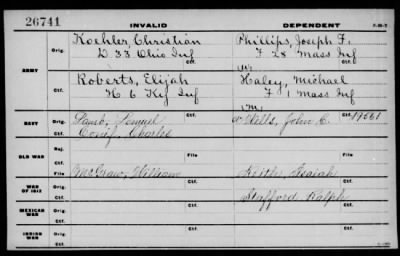 26741
INVALID
DEPENDENT
Koehler, Christian
Phillips, Joseph F.
Orig.
D 33 Ohio Inf
F 28 Mass Inf
Ctf.
ARMY
Roberts, Elijah
Haley, Michael
Orig.
H 6 Ky Inf
F 1 Mass Inf
Ctf.
NAVY
Orig.
Samuel
Wells, John C.
Ctf. 19561
Ctf.
Charles
Rej.
Ctf.
OLD WAR
File
File
WAR OF 1812
Orig.
McGraw, William
Isaiah
Ctf.
Stafford Ralph
MEXICAN WAR
Orig.
Ctf.
INDIAN WAR
Orig.
Ctf.